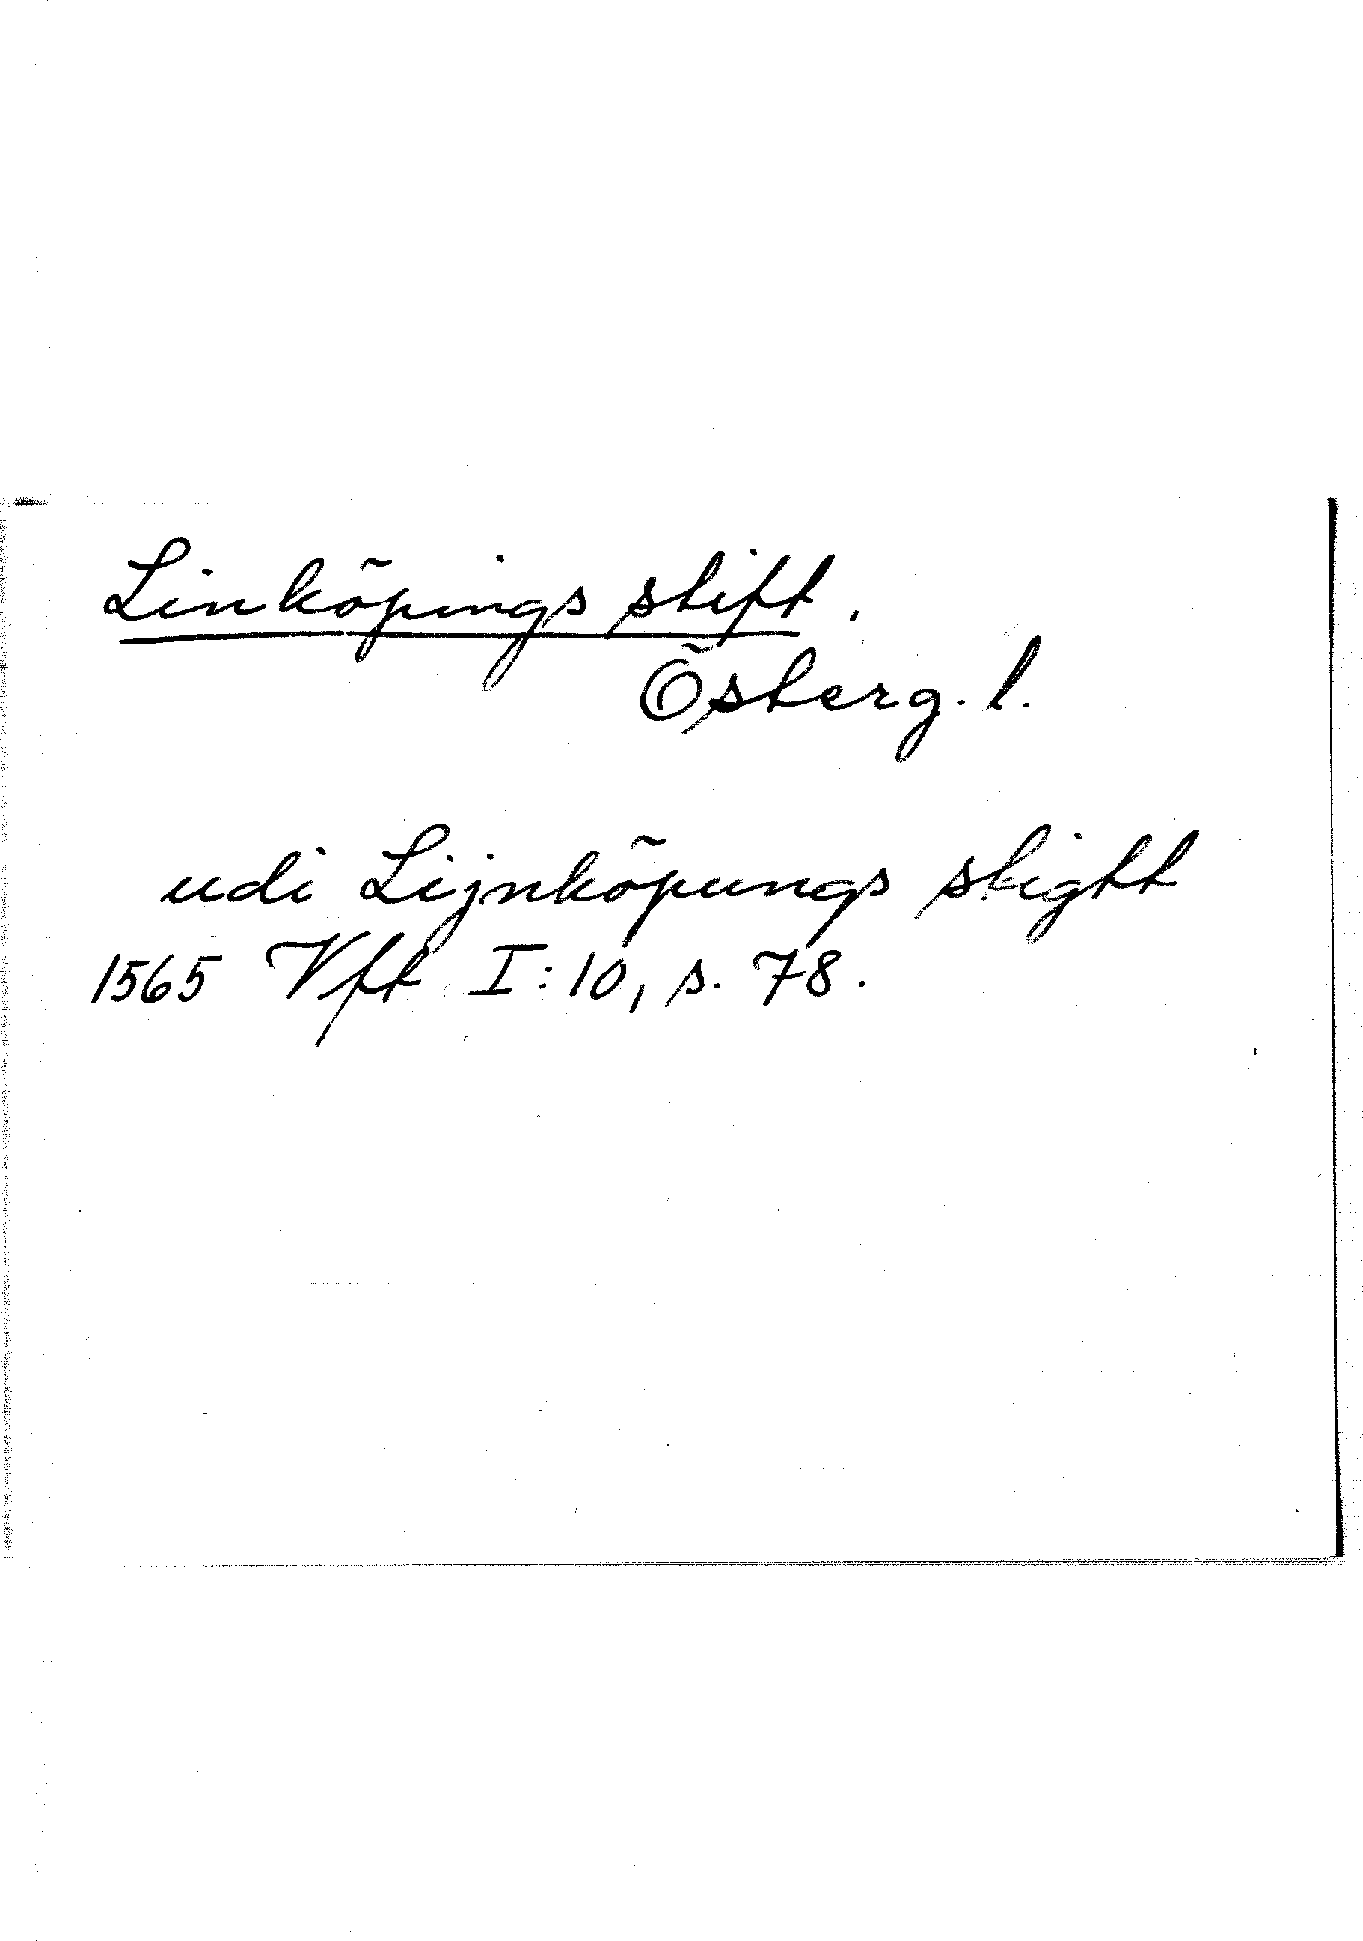 Linköpings stift.
Österg. l.
udi Lijnköpungs stightt
1565 Vft I:10, s. 78.